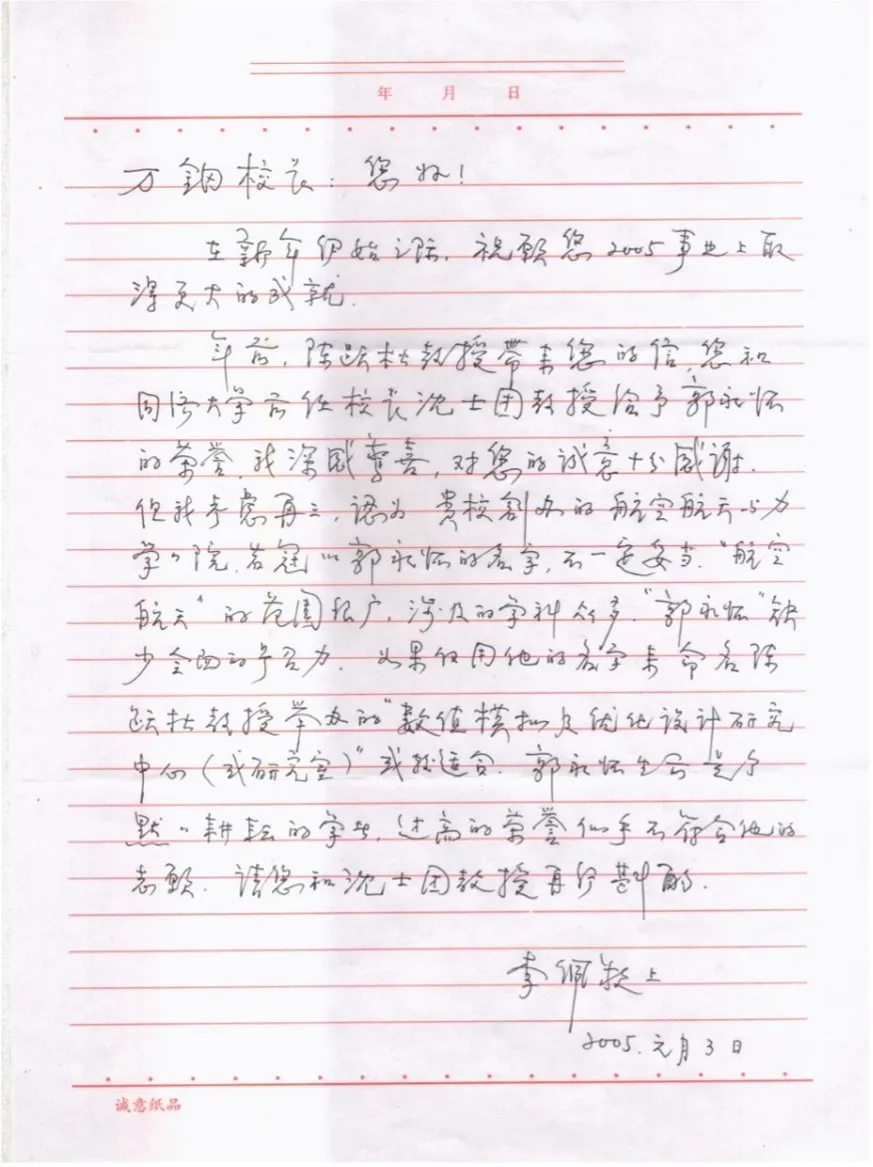 年 月 日
万钢校长：您好！
在新年伊始之际，祝愿您2005事业上取
得更大的成就.
年前，陈跃杜教授带来您的信，您和
同济大学前任校长沈士团教授给予郭永怀
的荣誉，我深感惊喜，对您的诚意十分感谢.
但我考虑再三，認为贵校創办的航空航天与力
学学院，若冠以郭永怀的名字，不一定妥当."航空
航天"的范围很广，涉及的学科众多."郭永怀"缺
少全面的号召力.如果仅用他的名字来命名陈
教授举办的"数值模拟及优化设计研究
中心(或研究室)"或较适合.郭永怀生前是个
默〃耕耘的学者，过高的荣誉似乎不符合他的
志願.请您和沈士团教授再行斟酌.
李佩 上
2005.元月3日
诚意纸品